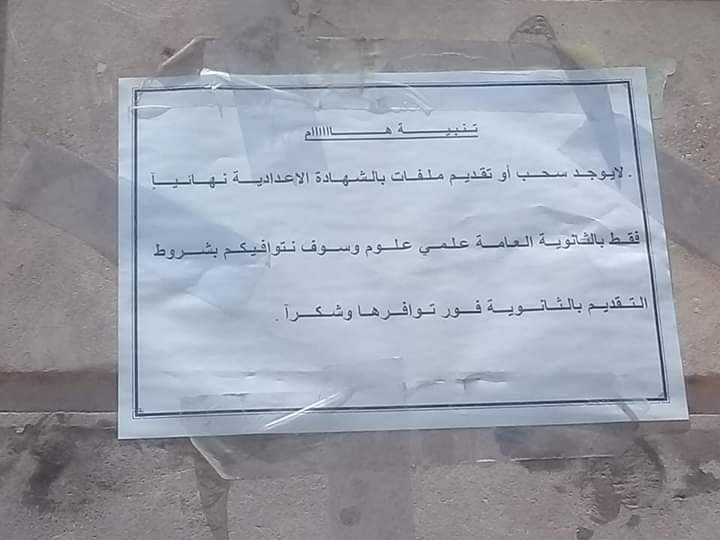 تنبية هـــاااااام
. لايوجد سحب أو تقديم ملفات بالشهادة الاعدادية نهائيآ
فقط بالثانوية العامة علمي علوم وسوف نتوافيكم بشروط
التقديم بالثانوية فور توافرها وشكرآ .